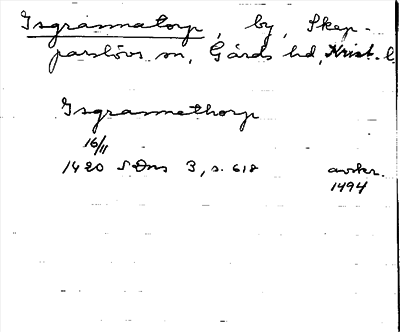 Isgrannatorp, by, Skep-
parslövs sn, Gärds hd, Krist. l.
Isgrannethorp
16/11
1420 SDns 3, s. 618 avskr.
1494